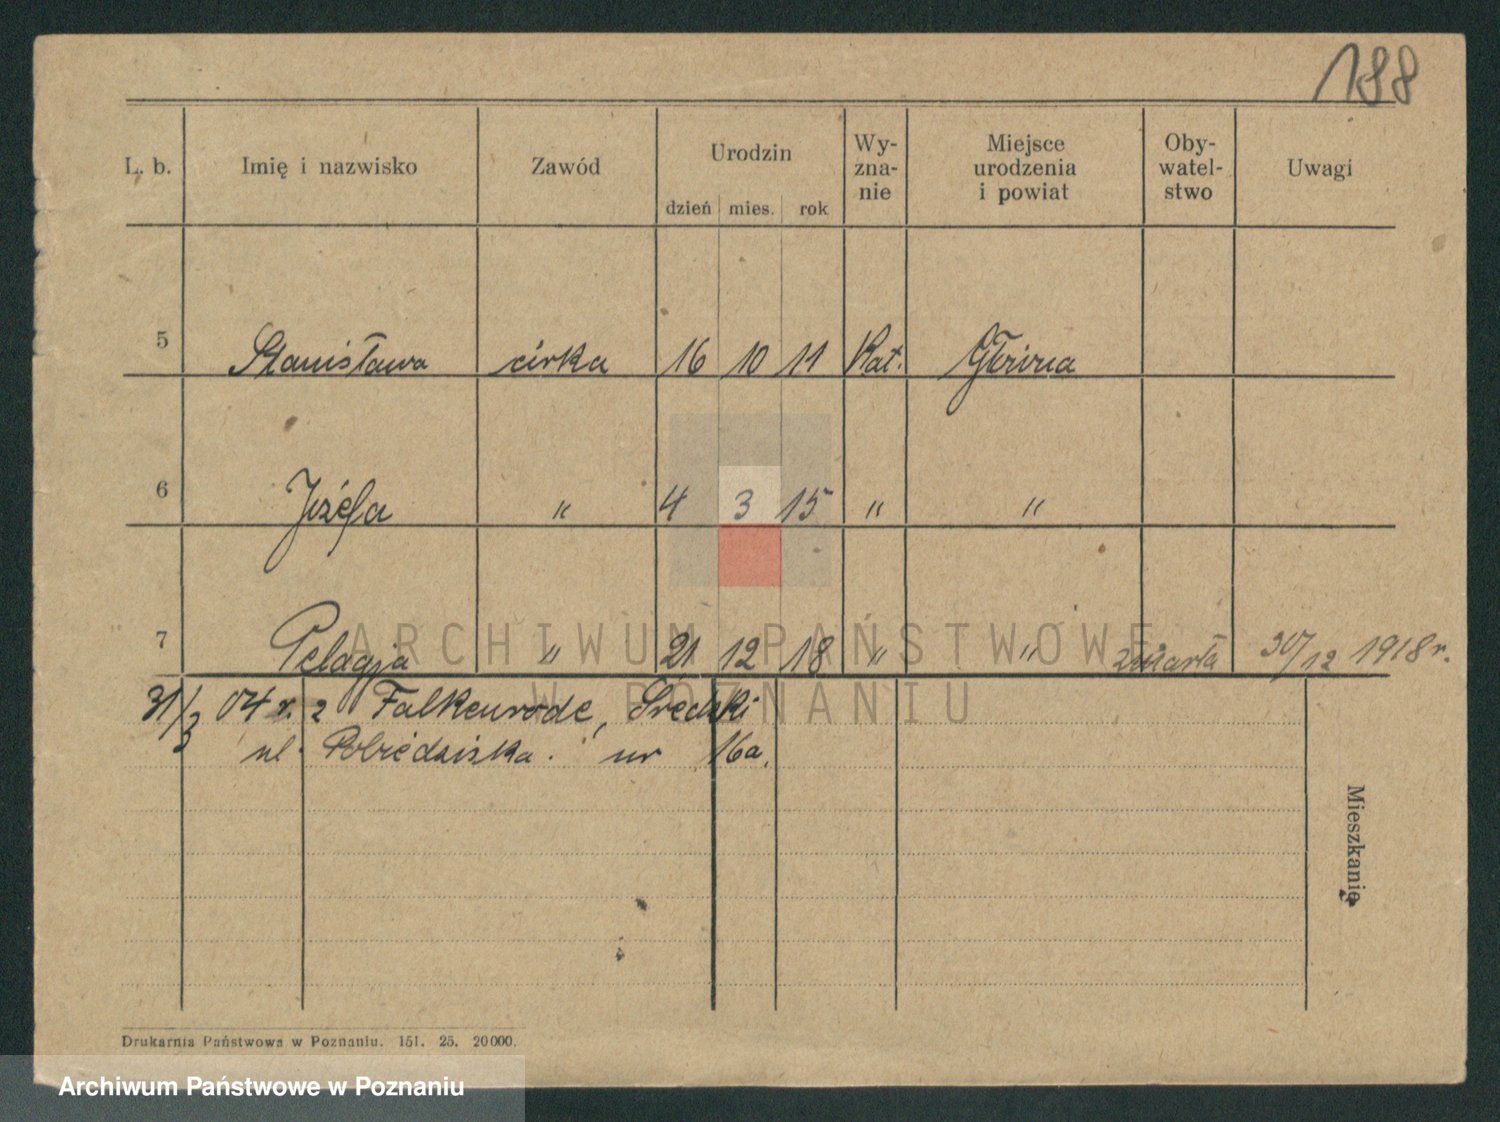 188
L. b. Imię i nazwisko Zawód Urodzin dzień mies. rok Wy-zna-nie Miejsce urodzenia i powiat Oby-watel-stwo Uwagi
5 Stanisława córka 16 10 11 Kat. Główna
6 Józefa " 4 3 15 " "
7 Pelagja " 21 12 18 " " zmarła 30/12 1918 r.
ARCHIWUM PAŃSTWOWE
W POZNANIU
31/3 04 r. z Falkenrode, Średzki
ul. Pobiedziska. nr 16a.
Mieszkanie
Drukarnia Państwowa w Poznaniu. 151. 25. 20000.
Archiwum Państwowe w Poznaniu